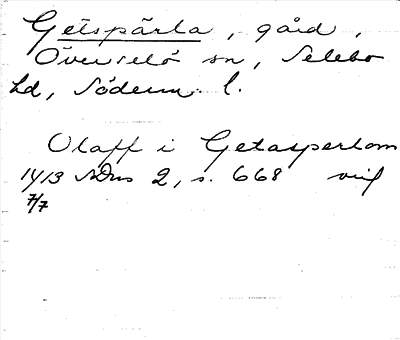 Getspärla, gård,
Överselö sn, Selebo
hd, Söderm. l.
Olaff i Getasperlom
1413 SDns 2, s. 668 orig
7/7